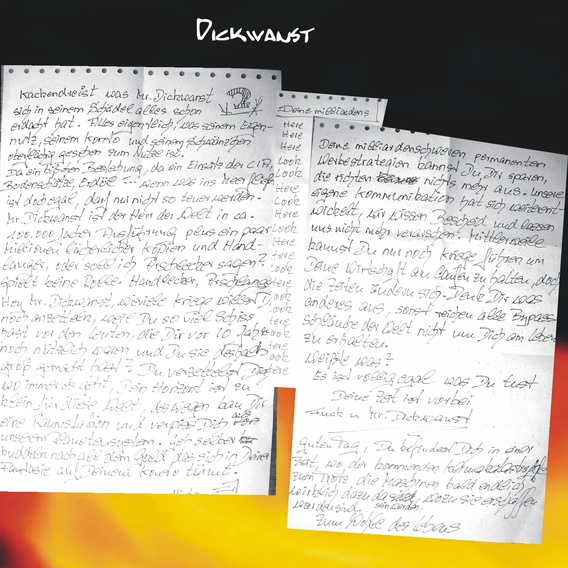 Dickwanst
Kackendreist was Mr. Dickwanst
sich in seinem Schädel alles schon
erdacht hat. Alles eigentlich, was seinem Eigen-
nutz, seinem Konto und seinem Schwänzchen
oberflächig gesehen zum Nutze ist.
Da ein bißchen Bestechung, da ein Einsatz der CIA,
Bodenschätze, Erdöl ... wenn was ins Meer fließt
ist doch egal, darf nur nicht so teuer werden.
Mr. Dickwanst ist der Herr der Welt in ca.
100.000 facher Ausführung plus ein paar
Millionen lächerlicher Kopien und Hand-
langer, oder soll ich Arschlecker sagen?
spielt keine Rolle. Handlecker, Arschlanger
Hey Mr. Dickwanst, wieviele Kriege willst Du
noch anzetteln, weil Du so viel Schiss
hast vor den Leuten, die Dir vor 10 Jahren
noch nützlich waren und Du sie deshalb
groß gemacht hast? Du verzettelst Dich
wo immer es geht, Dein Horizont ist zu
klein für diese Welt, deswegen bau Dir
eine Raumstation und verpiss Dich aus
unserem Planetensystem. Geh selber
buddeln nach alle dem Gold das sich in Deiner
Fantasie auf Deinem Konto türmt.
Deine milliardens
Here
Here
Here
Look
Here
Look
Here
Look
Here
Here
Look
Here
Look
Here
Look
Here
Look
Here
Look
Here
Deine milliardenschweren permanenten
Werbestrategien kannst Du Dir sparen,
die richten nichts mehr aus. Unsere
eigene Kommunikation hat sich weiterent-
wickelt, wir wissen Bescheid und lassen
uns nicht mehr verarschen. Mittlerweile
kannst Du nur noch Kriege führen um
Deine Wirtschaft am Laufen zu halten, doch
die Zeiten ändern sich. Denk Dir was
anderes aus, sonst reichen alle Bypass-
schläuche der Welt nicht um Dich am Leben
zu erhalten.
Weißte was?
Es ist völlig egal was Du tust
Deine Zeit ist vorbei
Fuck u Mr. Dickwanst
guten Tag, Du befindest Dich in einer
Zeit, wo der kommenden
zum Trotz die Maschinen bald endlich
wirklich dazu da sein werden, wozu sie erschaffen
worden sind.
zum Wohle des Lebens